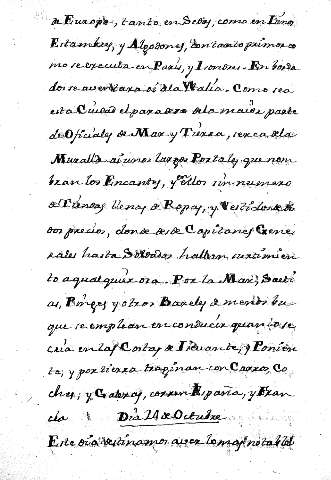 de Europa, tanto en Sedas, como en Linos
Estambres, y Algodones, con tanto primor co
mo se executa en Paris, y Londres. En borda
dos se aventaxa
esta Ciudad el paradero de la maior parte
de Oficiales de Mar y Tierra, serca de la
Muralla ai unos largos Portales que nom
bran los Encantes, y en ellos sin numero
de Tiendas llenas de Ropas, y Vestidos de to
dos precios, donde desde Capitanes Gene
rales hasta Soldados hallan surtimien
to a qualquier ora. Por la Mar,
as, Pinques y otros Baxeles de menor bu
que se emplean en conducir quanto se
cria en las Costas de Levante, y Ponien
te; y por tierra traginan con Carros, Co
ches, y Galeras, corren España, y Fran
cia
Dia 14 de Octubre
Este dia destinamos a ver lo mas notable